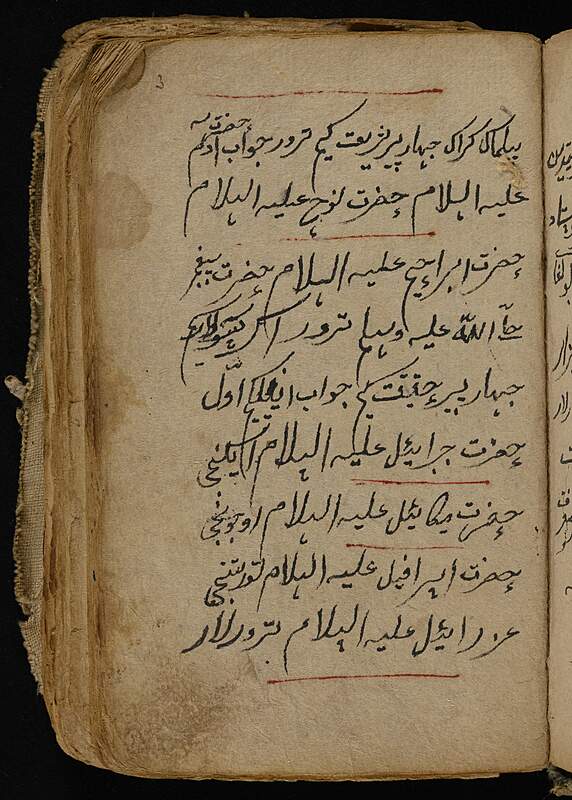 3
بیلماک کراک چهار پیر شریعت کیم ترور جواب حضرت آدم
علیه السلام حضرت نوح علیه السلام
حضرت ابراهیم علیه السلام حضرت پیغمبر
صلی الله علیه وسلم ترور اکر
چهار پیر حقیقت کیم جواب اول
حضرت جبرائیل علیه السلام ایکنجی
حضرت میکائیل علیه السلام اوچونجی
حضرت اسرافیل علیه السلام تورتنجی
عزرائیل علیه السلام ترورلار